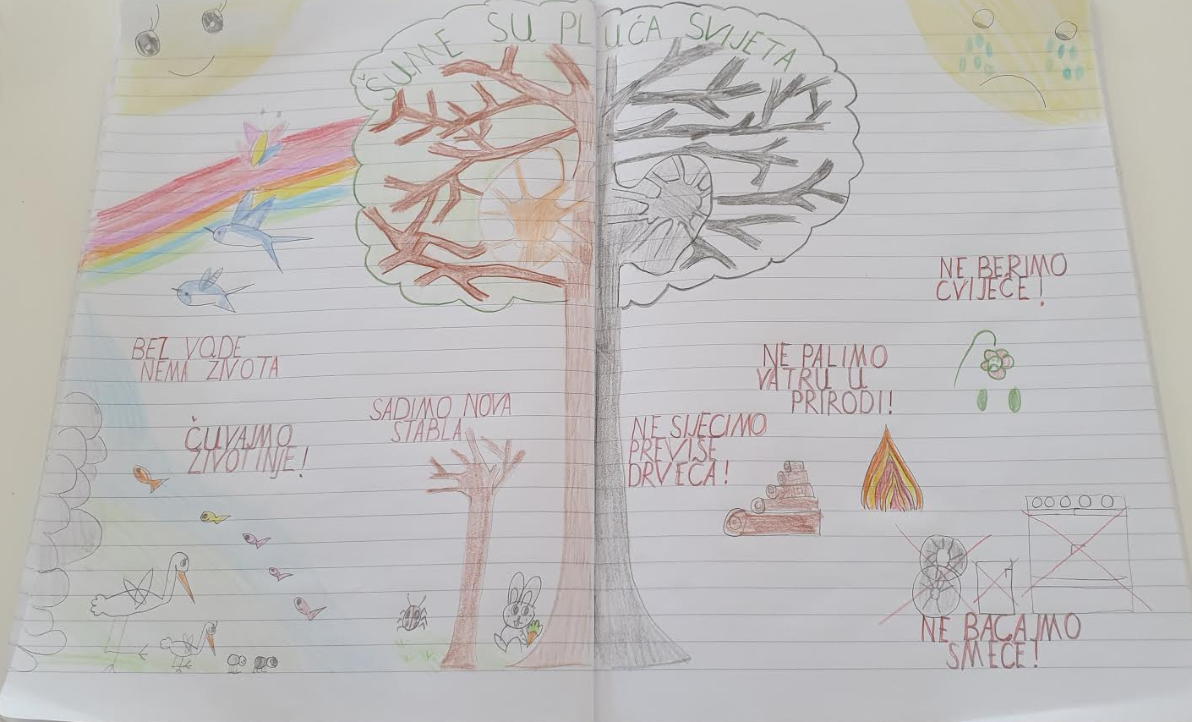 ŠUME SU PLUĆA SVIJETA
BEZ VODE
NEMA ŽIVOTA
ČUVAJMO
ŽIVOTINJE!
SADIMO NOVA
STABLA
NE SIJECIMO
PREVIŠE
DRVEĆA!
NE PALIMO
VATRU U
PRIRODI!
NE BERIMO
CVIJEĆE!
NE BACAJMO
SMEĆE!